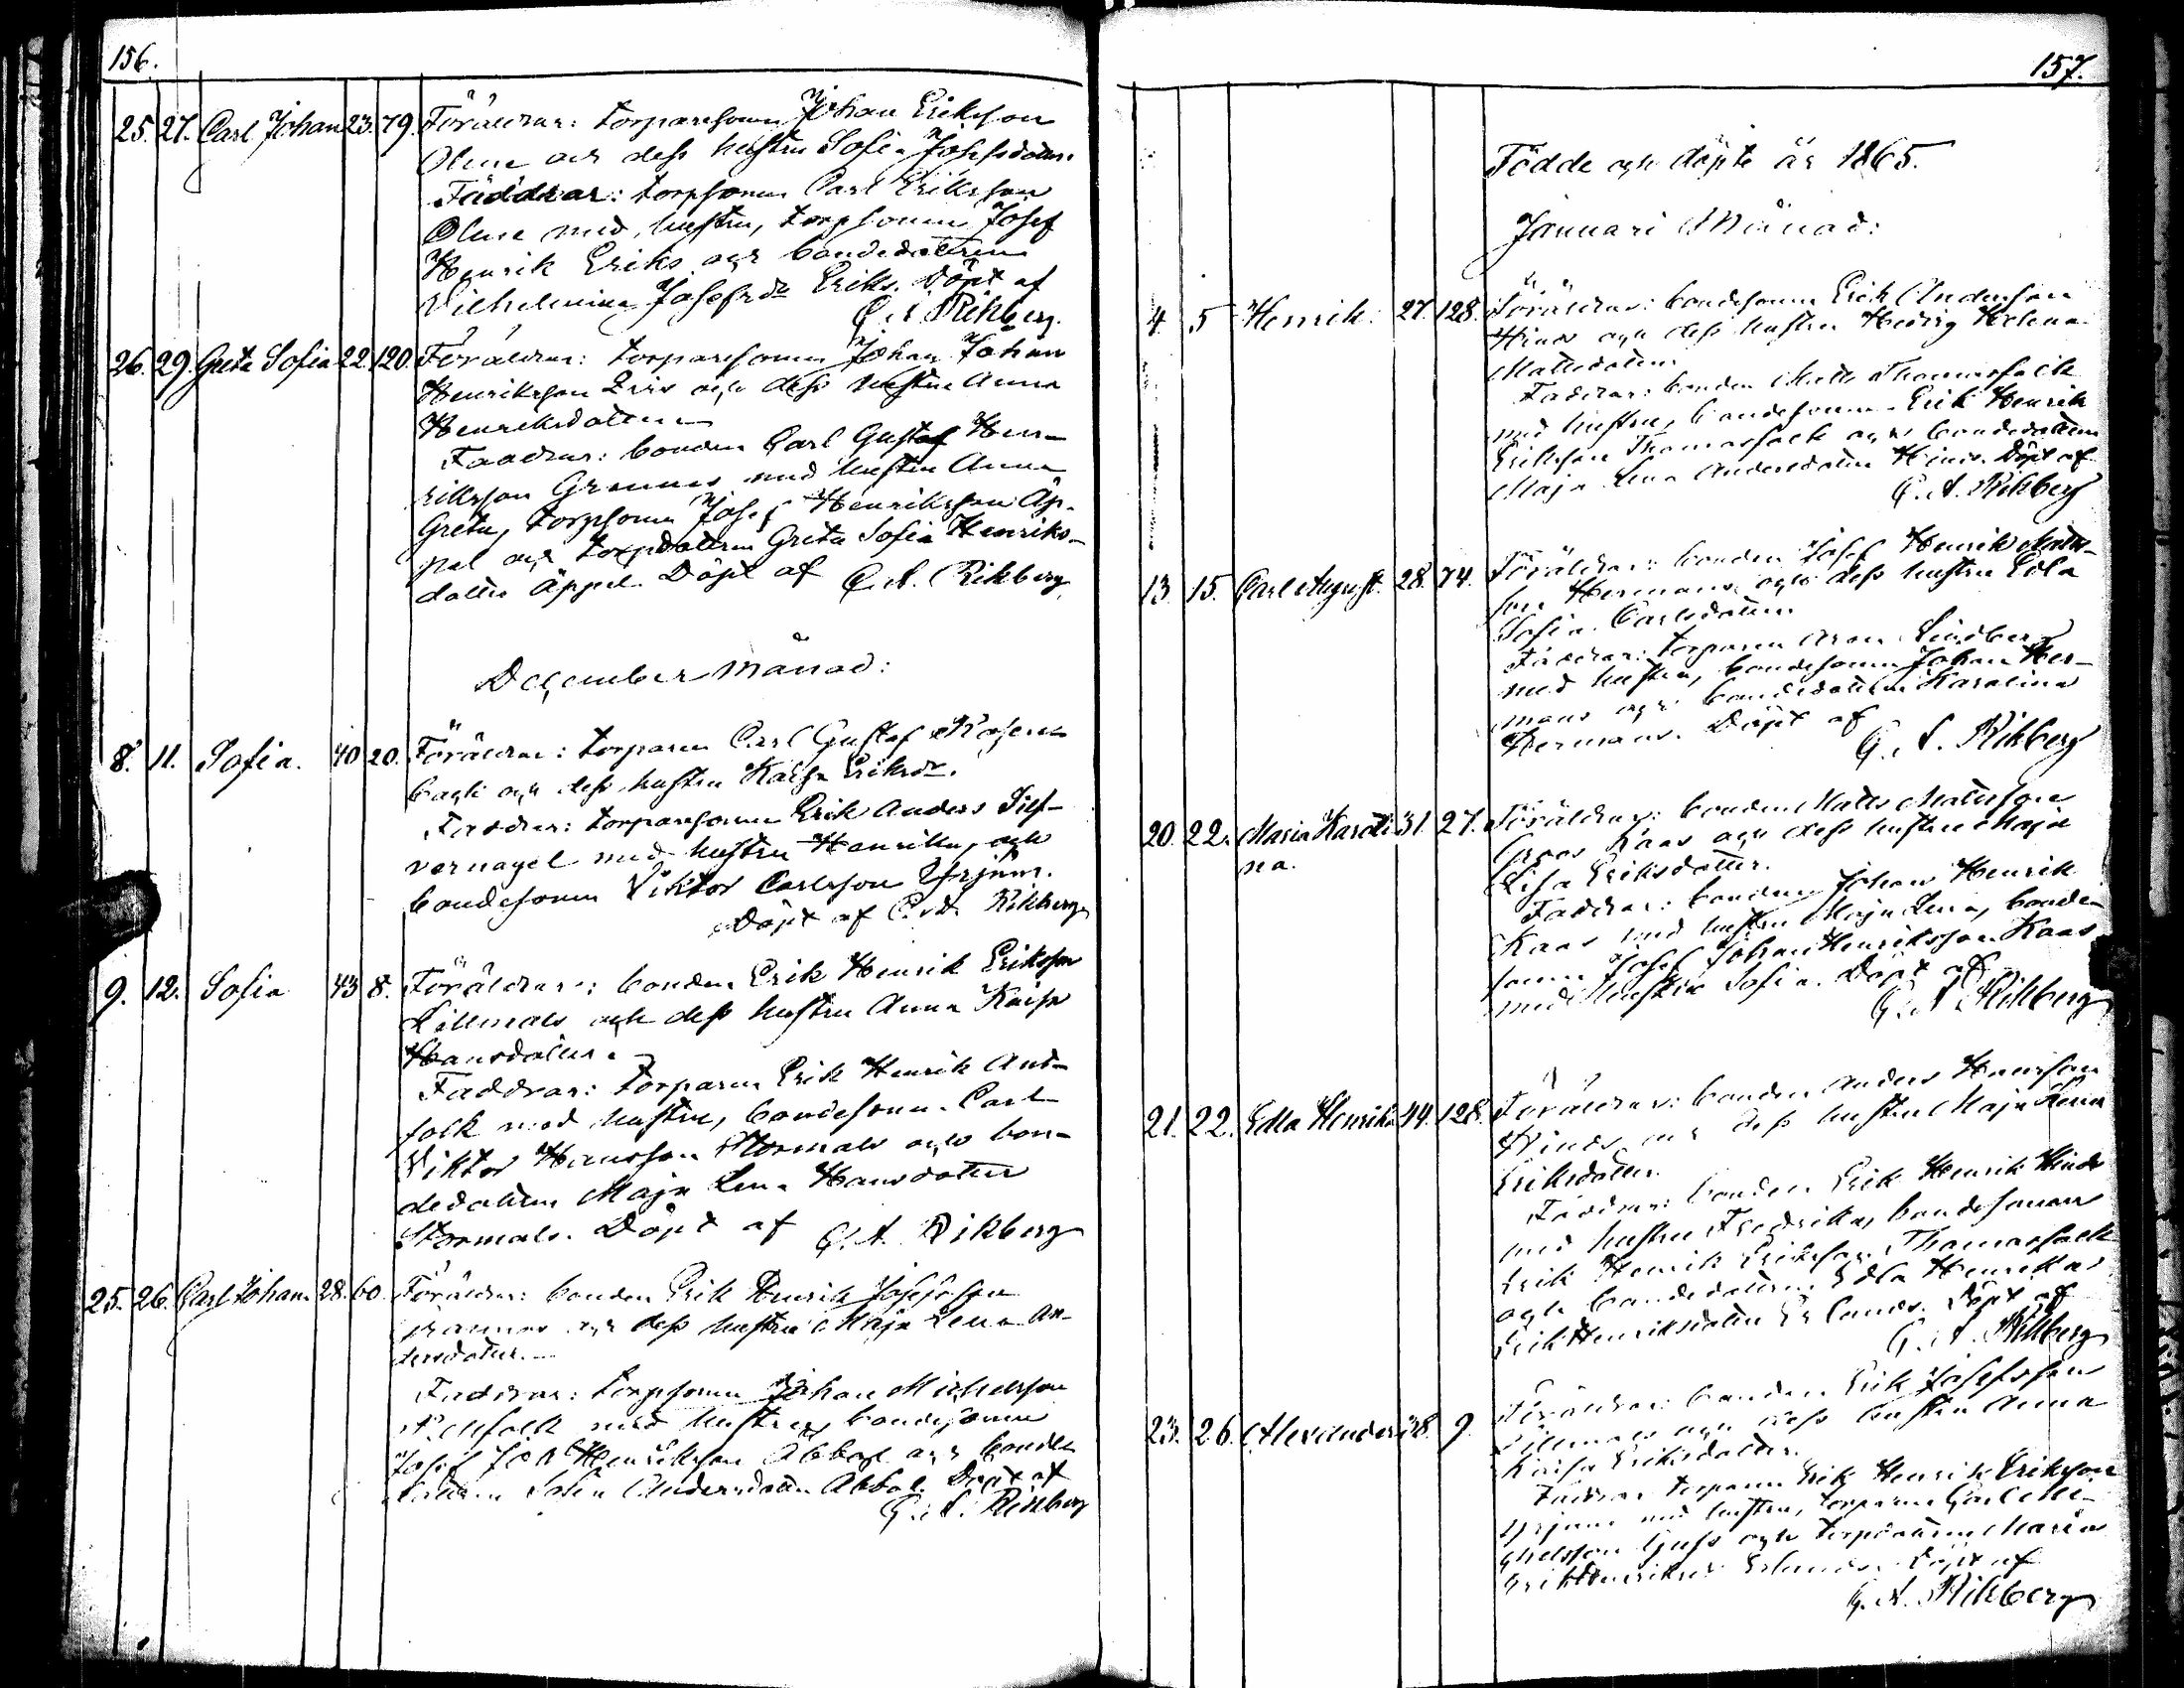 156.
25. 27. Carl Johan 23. 79. Föräldrar: torparesonen Johan Eriksson
Olme och dess hustru Sofia Josefsdotter.
Faddrar: torpsonen Carl Eriksson
Olme med hustru, torpsonen Josef
Henrik Eriks och bondedottren
Vilhelmina Josefsdr Eriks. Döpt af
G. A. Rikberg.
26. 29. Greta Sofia 22. 120. Föräldrar: torparesonen Johan Johan
Henriksson och dess hustru Anna
Henriksdotter
Faddrar: bonden Carl Gustaf Hen-
riksson Grannas med hustru Anna
Greta, torpsonen Josef Henriksson Äp-
pel och torpdottren Greta Sofia Henriks-
dotter Äppel. Döpt af G. A. Rikberg
December månad:
8. 11. Sofia. 40 20. Föräldrar: torparen Carl Gustaf
och dess hustru Kaisa Eriksdr.
Faddrar: torparesonen Erik Anders Silf-
vernagel med hustru Henrika, och
bondesonen Viktor Carlsson Yrjans.
Döpt af G. A. Rikberg
9. 12. Sofia 43 8. Föräldrar: bonden Erik Henrik Eriksson
Lillmals och dess hustru Anna Kaisa
Hansdotter.
Faddrar: torparen Erik Henrik And-
folk med hustru, bondesonen Carl
Viktor Hansson Stormals och bon-
dedottren Maja Lena Hansdotter
Stormals. Döpt af G. A. Rikberg
25. 26. Carl Johan 28. 60. Föräldrar: bonden Erik Henrik Josefsson
och dess hustru Maja Lena An-
dersdotter.
Faddrar: torpsonen Johan Michelsson
med hustru, bondesonen
Josef Henriksson Abbal och bonde-
dottren Sofia Andersdotter Abbal. Döpt af
G. A. Rikberg
157.
Födde och döpte år 1865.
Januari Månad:
4. 5 Henrik. 27. 128. Föräldrar: bondesonen Erik Andersson
Hinds och dess hustru Hedvig Helena
Mattsdotter.
Faddrar: bonden Matts Thomasfolk
med hustru, bondesonen Erik Henrik
Eriksson Thomasfolk och bondedottren
Maja Lena Andersdotter Hinds. Döpt af
G. A. Rikberg
13. 15. Carl August. 28. 74. Föräldrar: bonden Josef Henrik Matts-
son Hermans och dess hustru Edla
Sofia Carlsdotter.
Faddrar: torparen Aron Lindberg
med hustru, bondesonen Johan Her-
mans och bondedottren Karolina
Hermans. Döpt af
G. A. Rikberg
20. 22. Maria Karoli- 31. 27. Föräldrar: bonden Matts Mattsson
na. Kaas och dess hustru Maja
Lisa Eriksdotter.
Faddrar: bonden Johan Henrik
Kaas med hustru Maja Lena, bonde-
sonen Josef Johan Henriksson Kaas
med hustru Sofia. Döpt af
G. A. Rikberg
21. 22. Edla Henrika 44. 128. Föräldrar: bonden Anders Hansson
Hinds och dess hustru Maja Lena
Eriksdotter.
Faddrar: bonden Erik Henrik Hinds
med hustru Fredrika, bondesonen
Erik Henrik Eriksson Thomasfolk
och bondedottren Edla Henrika
Erik Henriksdotter Erlands. Döpt af
G. A. Rikberg
23. 26. Alexander 38. 9. Föräldrar: bonden Erik Josefsson
Lillmals och dess hustru Anna
Kaisa Eriksdotter.
Faddrar torparen Erik Henrik Eriksson
Yrjans med hustru, torparen Carl Mi-
chelsson Ljuss och torpdottren Maria
Erik Henriksdr Erlands. Döpt af
G. A. Rikberg